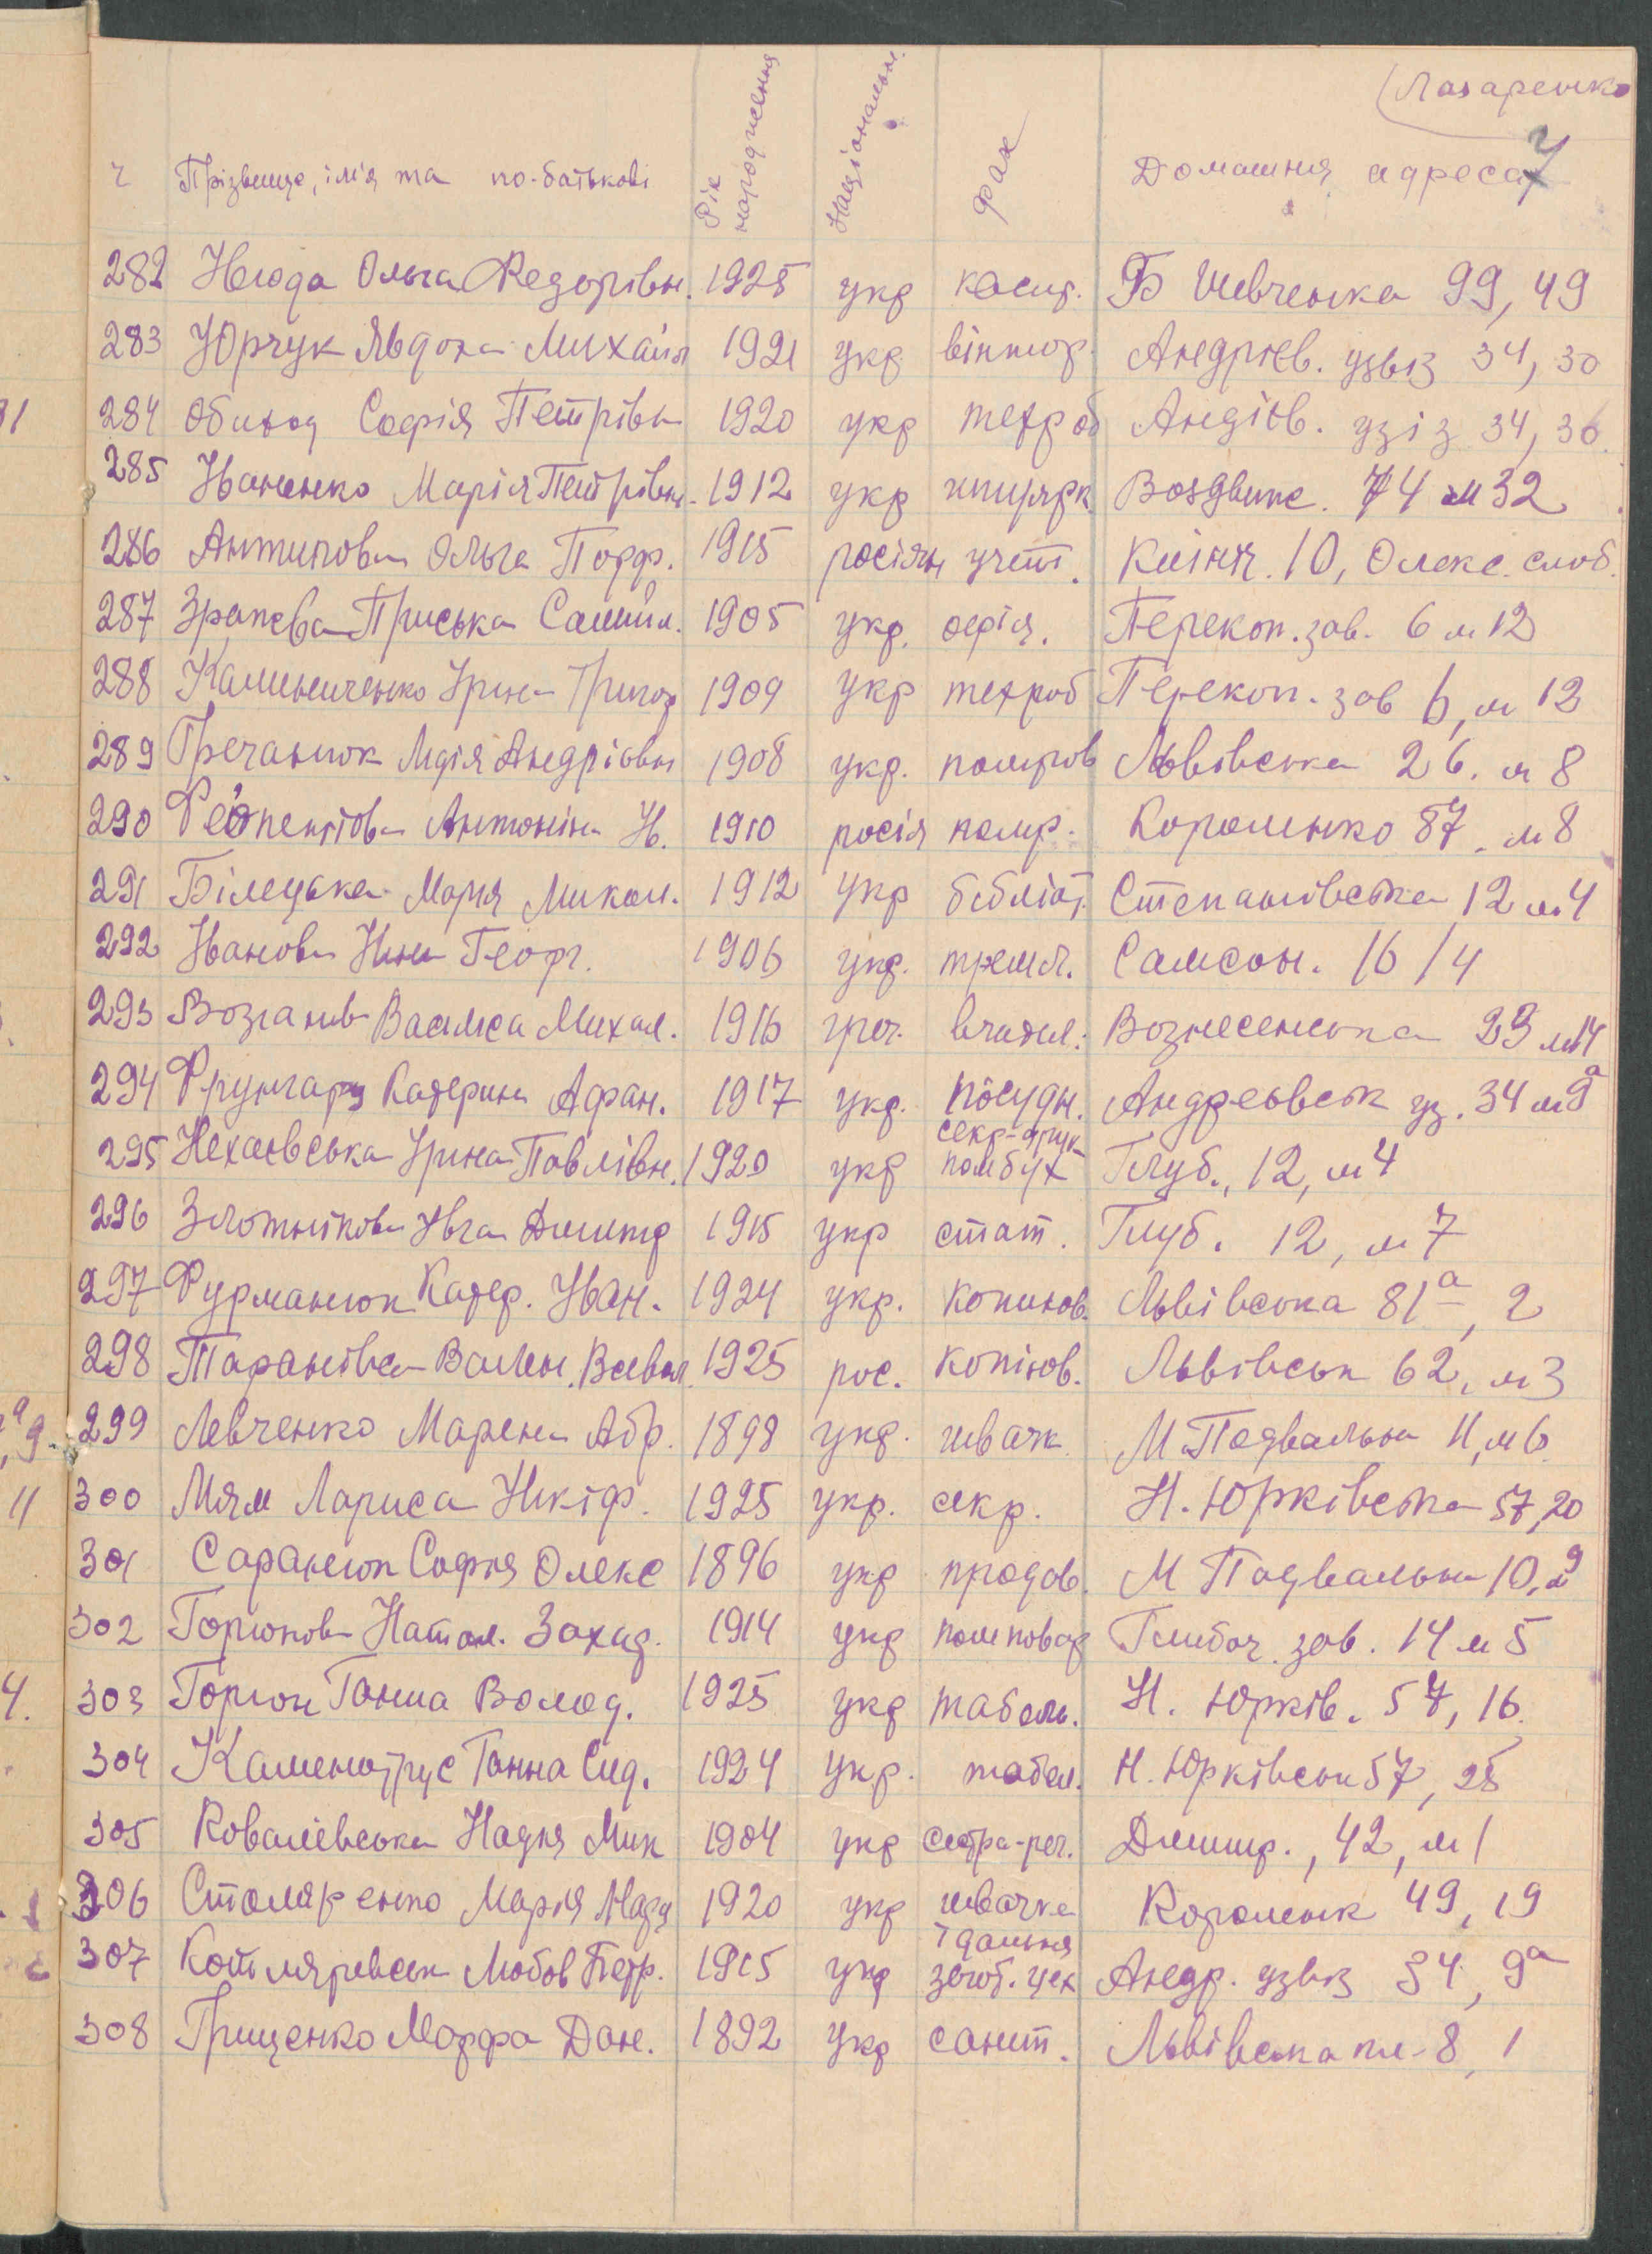 (Лазаренко
7
ч Прізвище, ім'я та по-батькові Рік народження Національн. Фах Домашня адреса
282 Негода Ольга Федорівн. 1925 укр касир. Б Шевченка 99, 49
283 Юрчук Явдоха Михайл 1921 укр Андріїв. узвіз 34, 30
284 Обиход Софія Петрівн 1920 укр техроб Андіїв. узіз 34, 36.
285 Іваненко Марія Петрівн. 1912 укр Воздвиж. 74 м 32
286 Антипова Ольга Порф. 1915 росіян учет. 10, Олекс. слоб.
287 Приська Самійл. 1905 укр. офіц. Перекоп. зав. 6 м 12
288 Ірина Григор 1909 укр техроб Перекоп. зав 6, м 12
289 Гречанюк Лідія Андріівн 1908 укр. Львівська 26. м 8
290 Антоніна І. 1910 росія Короленко 87, м 8
291 Білецька Марія Микол. 1912 укр бібліот. Степанівська 12 м 4
292 Іванова Ніна Георг. 1906 укр. Самсон. 16/4
293 Василиса Михал. 1916 грец. вчител. Вознесенська 29 м 14
294 Катерина Афан. 1917 укр. посудн. Андреєвськ уз. 34 м 9а
секр-друк
295 Нехаєвська Ірина Павлівн. 1920 укр помбух Глуб., 12, м 4
296 Золотнікова Івга Дмитр 1915 укр стат. Глуб. 12, м 7
297 Фурманюк Катер. Іван. 1924 укр. копиюв. Львівська 81а, 2
298 Таранівсь Вален. Всевол. 1925 рос. копіюв. Львівськ 62, м 3
299 Левченко Марена Абр. 1898 укр. швачк М. Подвальна 11, м 6
300 Мям Лариса Нікіф. 1925 укр. секр. Н. Юрківська 57, 20
301 Саранюк Софія Олекс 1896 укр продав. М Подвальна 10, 29
302 Горюнова Натал. Захар. 1914 укр помповар Глибоч. зав. 14 м 5
303 Горюн Ганна Волод. 1925 укр табель. Н. Юрків. 57, 16.
304 Каменотрус Ганна Сид. 1924 укр. табел. Н. Юрківськ 57, 25
305 Ковалівська Надія Мик 1904 укр сестра-реч. Дмитр., 42, м 1
306 Столяренко Марія Назар 1920 укр швачка Короленк 49, 19
їдальня
307 Котляревськ Любов Петр. 1915 укр загот. цех Андр. узвіз 34, 9а
308 Грищенко Марфа Дан. 1892 укр саніт. Львівська пл. 8, 1